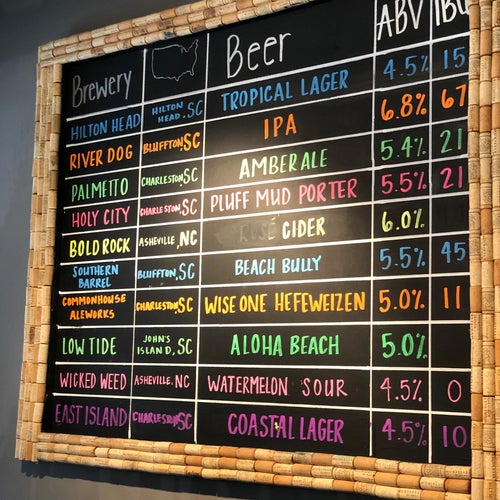 Brewery Beer ABV IBU
HILTON HEAD HILTON HEAD, SC TROPICAL LAGER 4.5% 15
RIVER DOG BLUFFTON, SC IPA 6.8% 67
PALMETTO CHARLESTON, SC AMBER ALE 5.4% 21
HOLY CITY CHARLESTON, SC PLUFF MUD PORTER 5.5% 21
BOLD ROCK ASHEVILLE, NC ROSÉ CIDER 6.0%
SOUTHERN BARREL BLUFFTON, SC BEACH BULLY 5.5% 45
COMMONHOUSE ALEWORKS CHARLESTON, SC WISE ONE HEFEWEIZEN 5.0% 11
LOW TIDE JOHN'S ISLAND, SC ALOHA BEACH 5.0%
WICKED WEED ASHEVILLE, NC WATERMELON SOUR 4.5% 0
EAST ISLAND CHARLESTON, SC COASTAL LAGER 4.5% 10